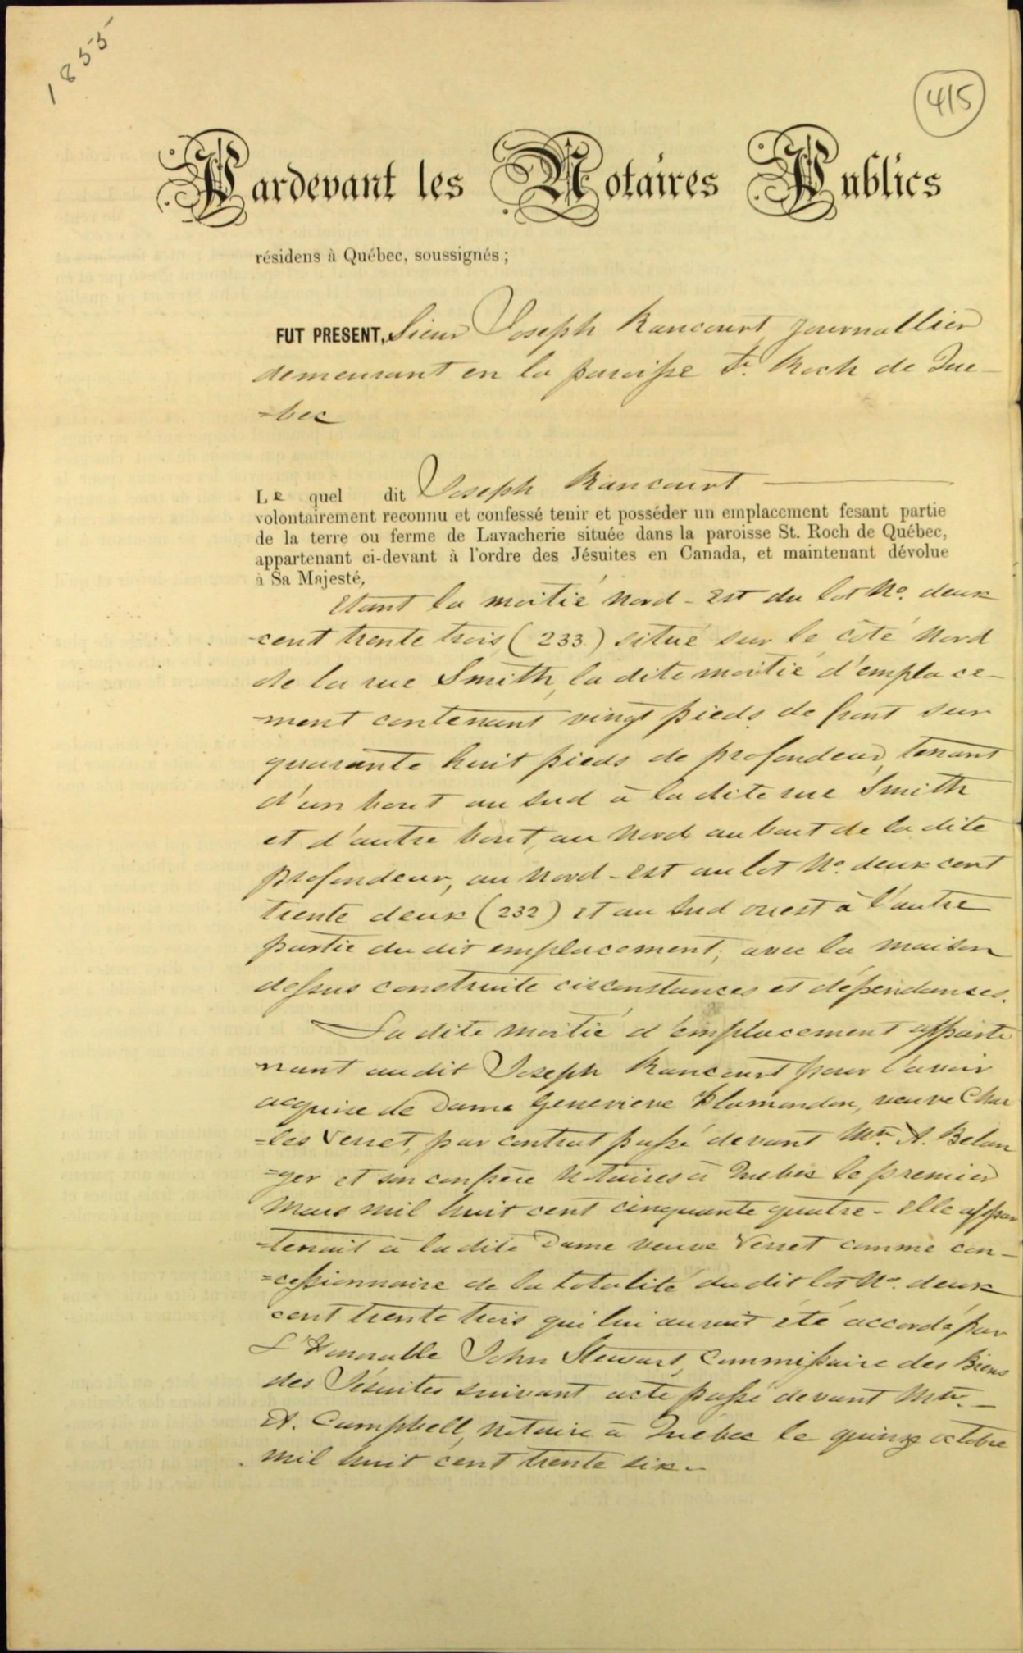 1855
415
Pardevant les Notaires Publics
résidens à Québec, soussignés ;
FUT PRESENT, Sieur Joseph Rancourt journallier
demeurant en la paroisse St. Roch de Qué-
=bec
Le quel dit Joseph Rancourt
volontairement reconnu et confessé tenir et posséder un emplacement fesant partie
de la terre ou ferme de Lavacherie située dans la paroisse St. Roch de Québec,
appartenant ci-devant à l'ordre des Jésuites en Canada, et maintenant dévolue
à Sa Majesté,
Etant la moitié nord-Est du lot No. deux
cent trente trois (233) situé sur le côté Nord
de la rue Smith, la dite moitié d'emplace-
-ment contenant vingt pieds de front sur
quarante huit pieds de profondeur, tenant
d'un bout au sud à la dite rue Smith
et d'autre bout, au Nord au bout de la dite
profondeur, au Nord-Est au lot No. deux cent
trente deux (232) et au Sud ouest à l'autre
partie du dit emplacement, avec la maison
dessus construite circonstances et dépendances.
La dite moitié d'emplacement apparte
nant au dit Joseph Rancourt pour l'avoir
acquise de Dame Genevieve Plamondon, veuve Char
=les Verret, par contrat passé devant Mtre. A. Belan
=ger et son confrère Notaires à Québec le premier
Mars mil huit cent cinquante quatre - Elle appar
-tenait à la dite Dame veuve Verret comme con-
=cessionnaire de la totalité du dit lot No. deux
cent trente trois qui lui aurait été accordé par
L'Honorable John Stewart, Commissaire des Biens
des Jésuites suivant acte passé devant Mtre.
A. Campbell, Notaire à Québec le quinze octobre
mil huit cent trente six.